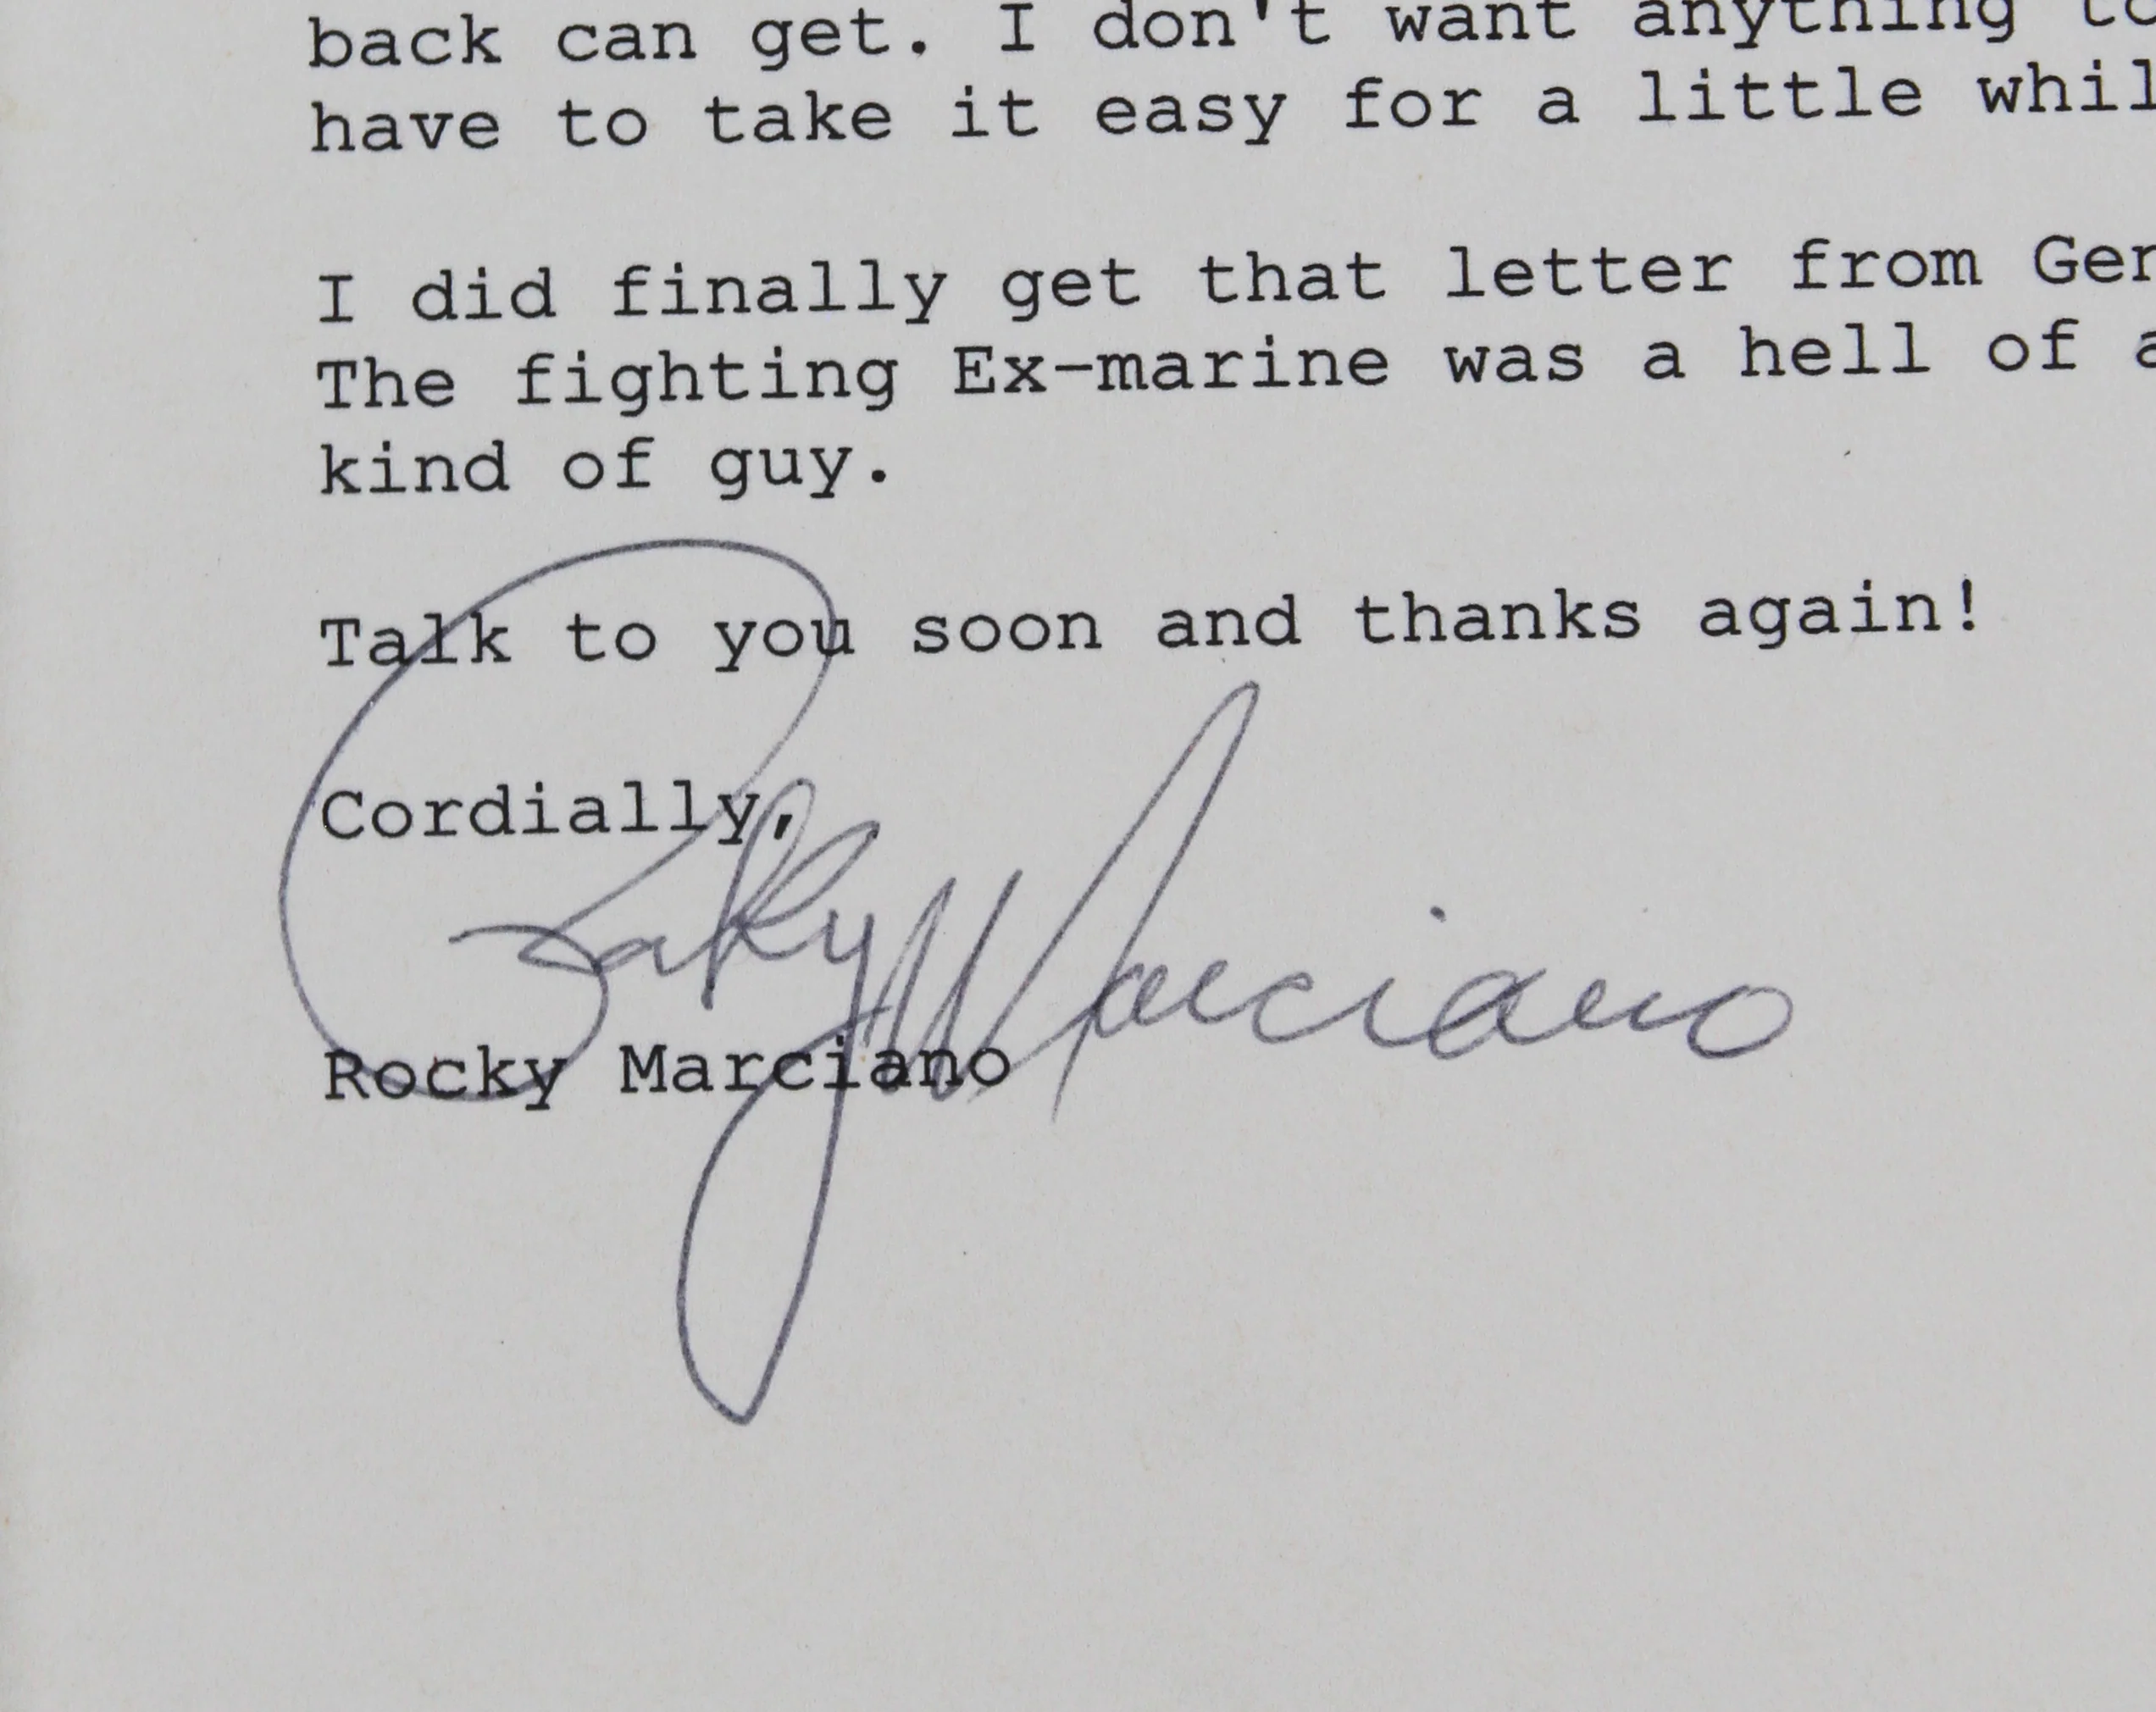 back can get. I don't want anything to
have to take it easy for a little whil
I did finally get that letter from Gen
The fighting Ex-marine was a hell of a
kind of guy.
Talk to you soon and thanks again!
Cordially,
Rocky Marciano
Rocky Marciano